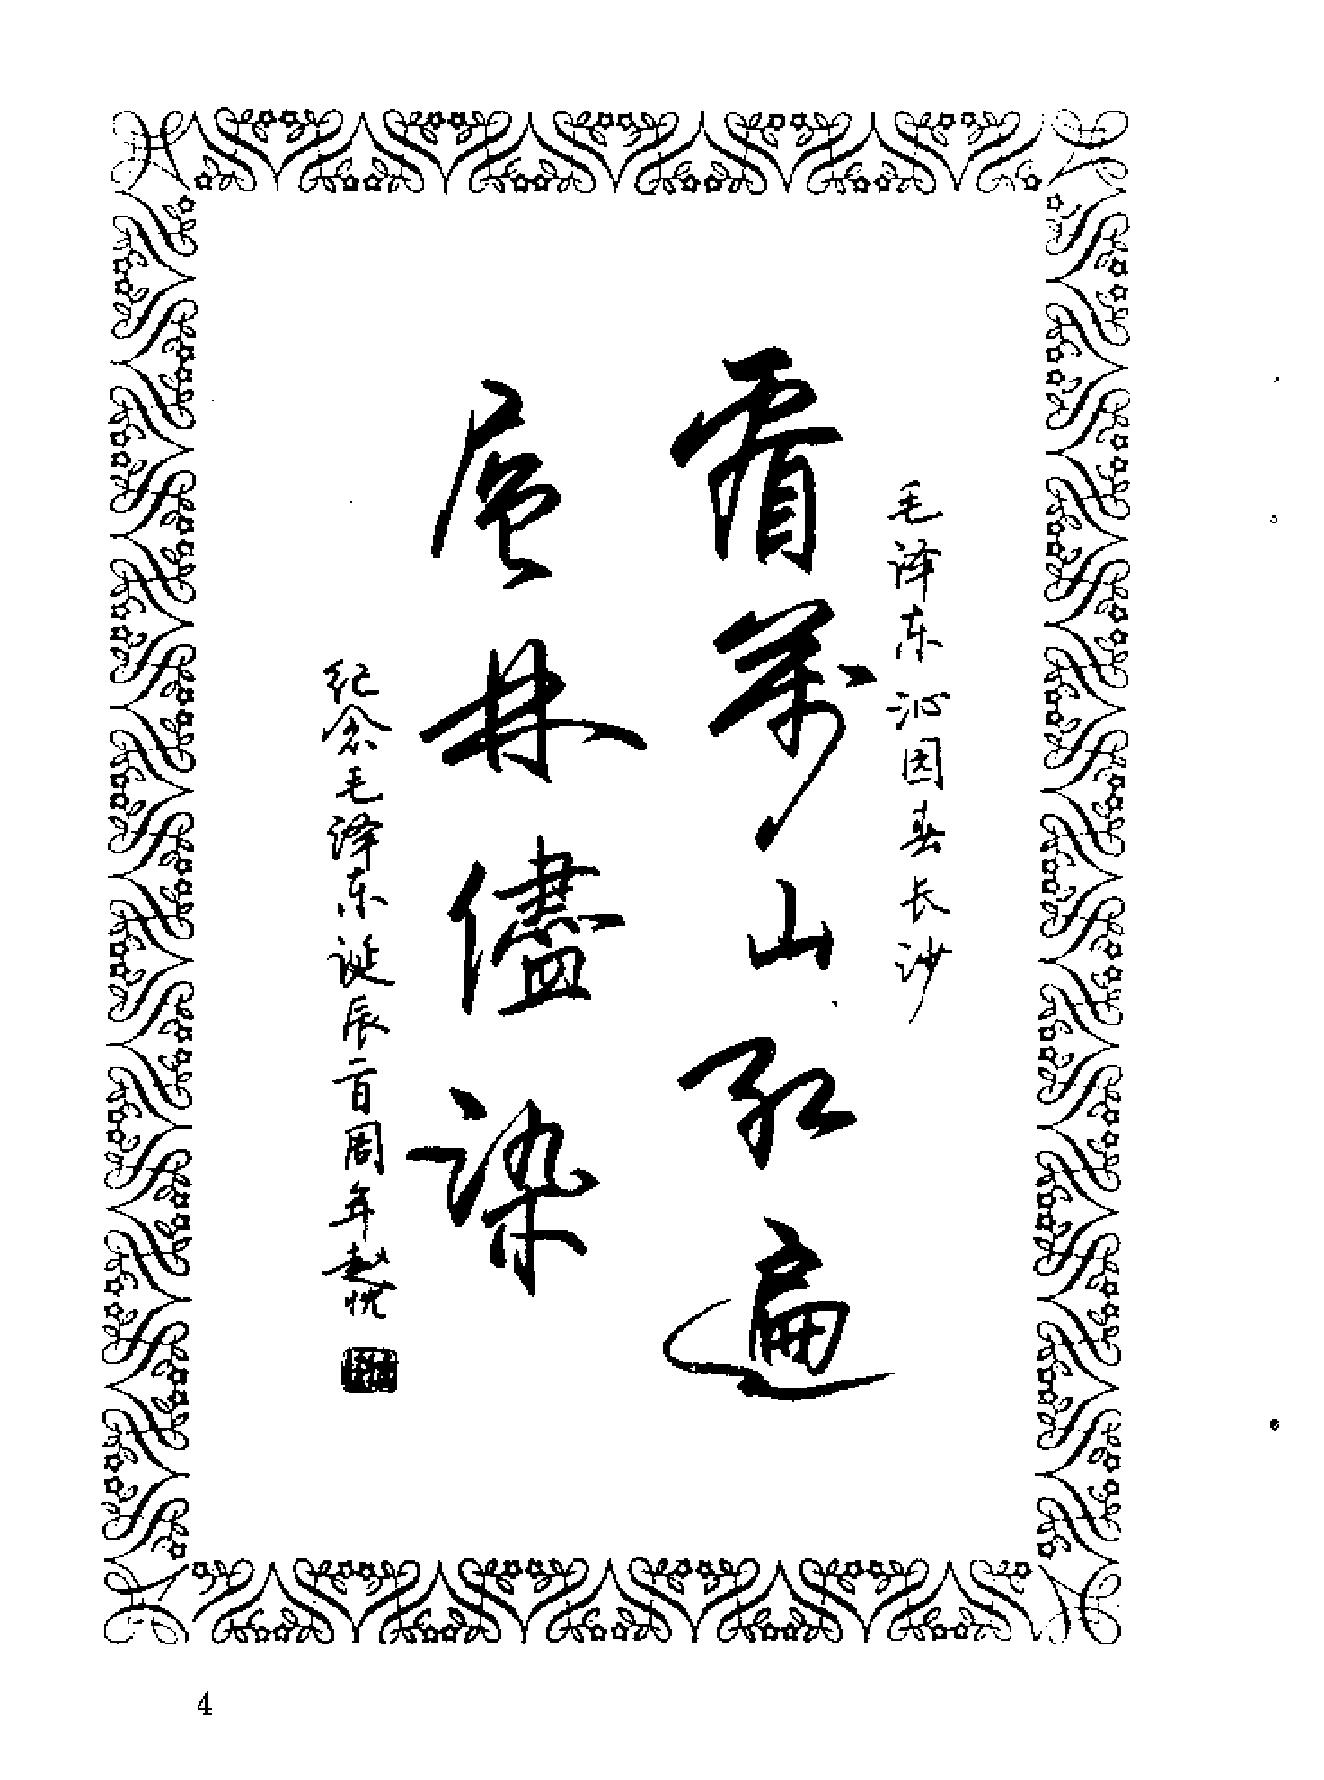 毛泽东沁园春长沙
看萬山红遍
层林儘染
纪念毛泽东诞辰一百周年赵悦
4